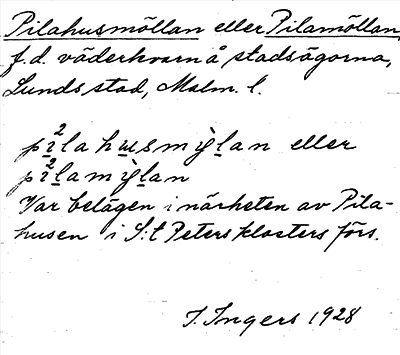 Pilahusmöllan eller Pilamöllan,
f.d. väderkvarn å stadsägorna,
Lunds stad, Malm. l.
pi²lahusmỳlan eller
pi²lamỳlan
Var belägen i närheten av Pila-
husen i S:t Peters klosters förs.
I. Ingers 1928